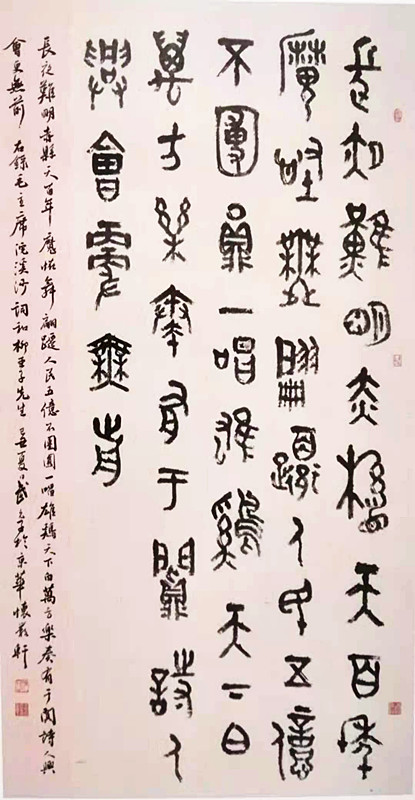 長夜難明赤縣天百年
魔怪舞翩躚人民五億
不團圓一唱雄鷄天下白
萬方樂奏有于闐詩人
興會更無前
長夜難明赤縣天百年魔怪舞翩躚人民五億不團圓一唱雄鷄天下白萬方樂奏有于闐詩人興
會更無前 右錄毛主席浣溪沙詞和柳亞子先生 己丑夏日 於京華